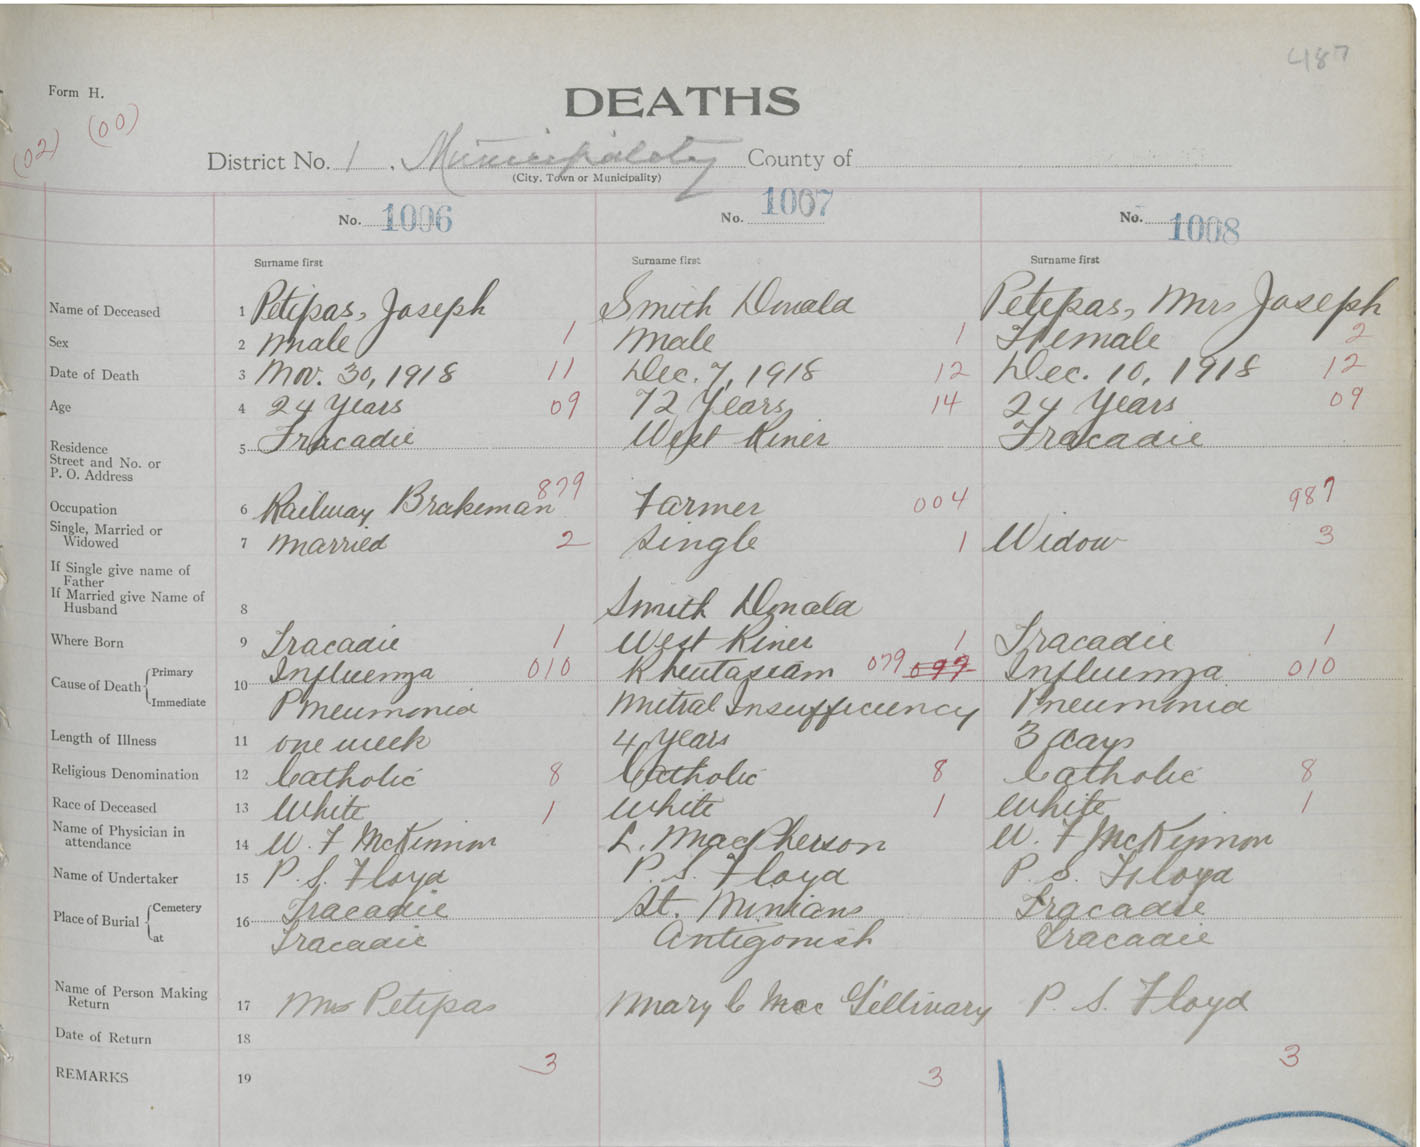 487
Form H.
DEATHS
(02) (00)
District No. 1, Municipality County of
(City, Town or Municipality)
No. 1006 No. 1007 No. 1008
Surname first Surname first Surname first
Name of Deceased 1 Petipas, Joseph Smith Donald Petipas, Mrs Joseph
Sex 2 Male 1 Male 1 Female 2
Date of Death 3 Nov. 30, 1918 11 Dec. 7, 1918 12 Dec. 10, 1918 12
Age 4 24 Years 09 72 Years 14 24 Years 09
Residence
Street and No. or
P. O. Address 5 Tracadie West River Tracadie
Occupation 6 Railway Brakeman 879 Farmer 004 987
Single, Married or
Widowed 7 Married 2 Single 1 Widow 3
If Single give name of
Father
If Married give Name of
Husband 8 Smith Donald
Where Born 9 Tracadie 1 West River 1 Tracadie 1
Cause of Death Primary 10 Influenza 010 079 Influenza 010
Immediate Pneumonia Mitral Insufficiency Pneumonia
Length of Illness 11 one week 4 years 3 days
Religious Denomination 12 Catholic 8 Catholic 8 Catholic 8
Race of Deceased 13 White 1 White 1 White 1
Name of Physician in
attendance 14 W. F McKinnon L. MacPherson W. F McKinnon
Name of Undertaker 15 P. S. Floyd P. S. Floyd P. S. Floyd
Place of Burial Cemetery 16 Tracadie St. Ninians Tracadie
at Tracadie Antigonish Tracadie
Name of Person Making
Return 17 Mrs Petipas Mary C Mac Gillivary P. S. Floyd
Date of Return 18
REMARKS 19 3 3 3